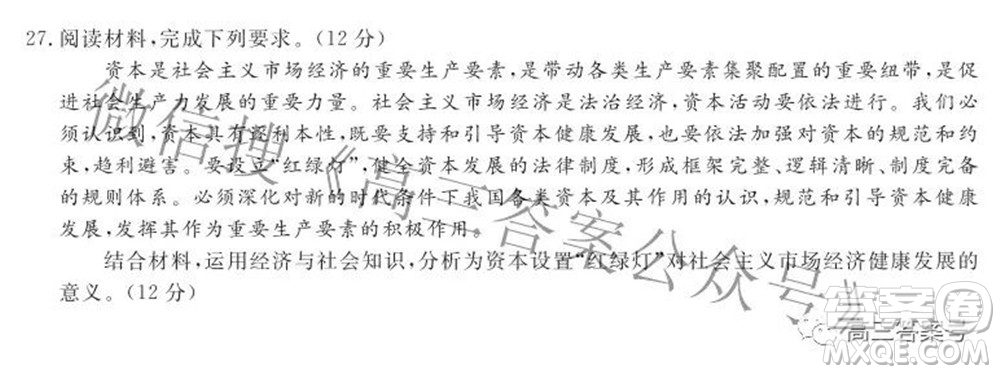 27.阅读材料,完成下列要求。(12 分)
资本是社会主义市场经济的重要生产要素,是带动各类生产要素集聚配置的重要纽带,是促
进社会生产力发展的重要力量。社会主义市场经济是法治经济,资本活动要依法进行。我们必
须认识到,资本具有逐利本性,既要支持和引导资本健康发展,也要依法加强对资本的规范和约
束,趋利避害。要设立“红绿灯”,健全资本发展的法律制度,形成框架完整、逻辑清晰、制度完备
的规则体系。必须深化对新的时代条件下我国各类资本及其作用的认识,规范和引导资本健康
发展,发挥其作为重要生产要素的积极作用。
结合材料,运用经济与社会知识,分析为资本设置“红绿灯”对社会主义市场经济健康发展的
意义。(12 分)
微信搜《高三答案公众号》
答案卷
高三答案号
MXQE.COM